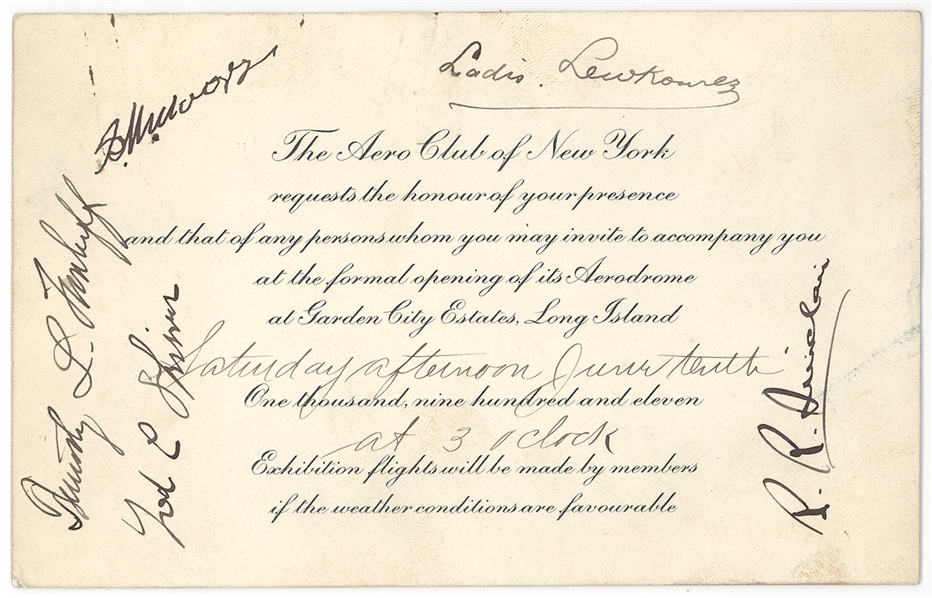 Ladis. Lewkowicz
The Aero Club of New York
requests the honour of your presence
and that of any persons whom you may invite to accompany you
at the formal opening of its Aerodrome
at Garden City Estates, Long Island
Saturday afternoon June tenth
One thousand, nine hundred and eleven
at 3 o'clock
Exhibition flights will be made by members
if the weather conditions are favourable
Timothy L.
Fred E Shriver
R. R. Sinclair